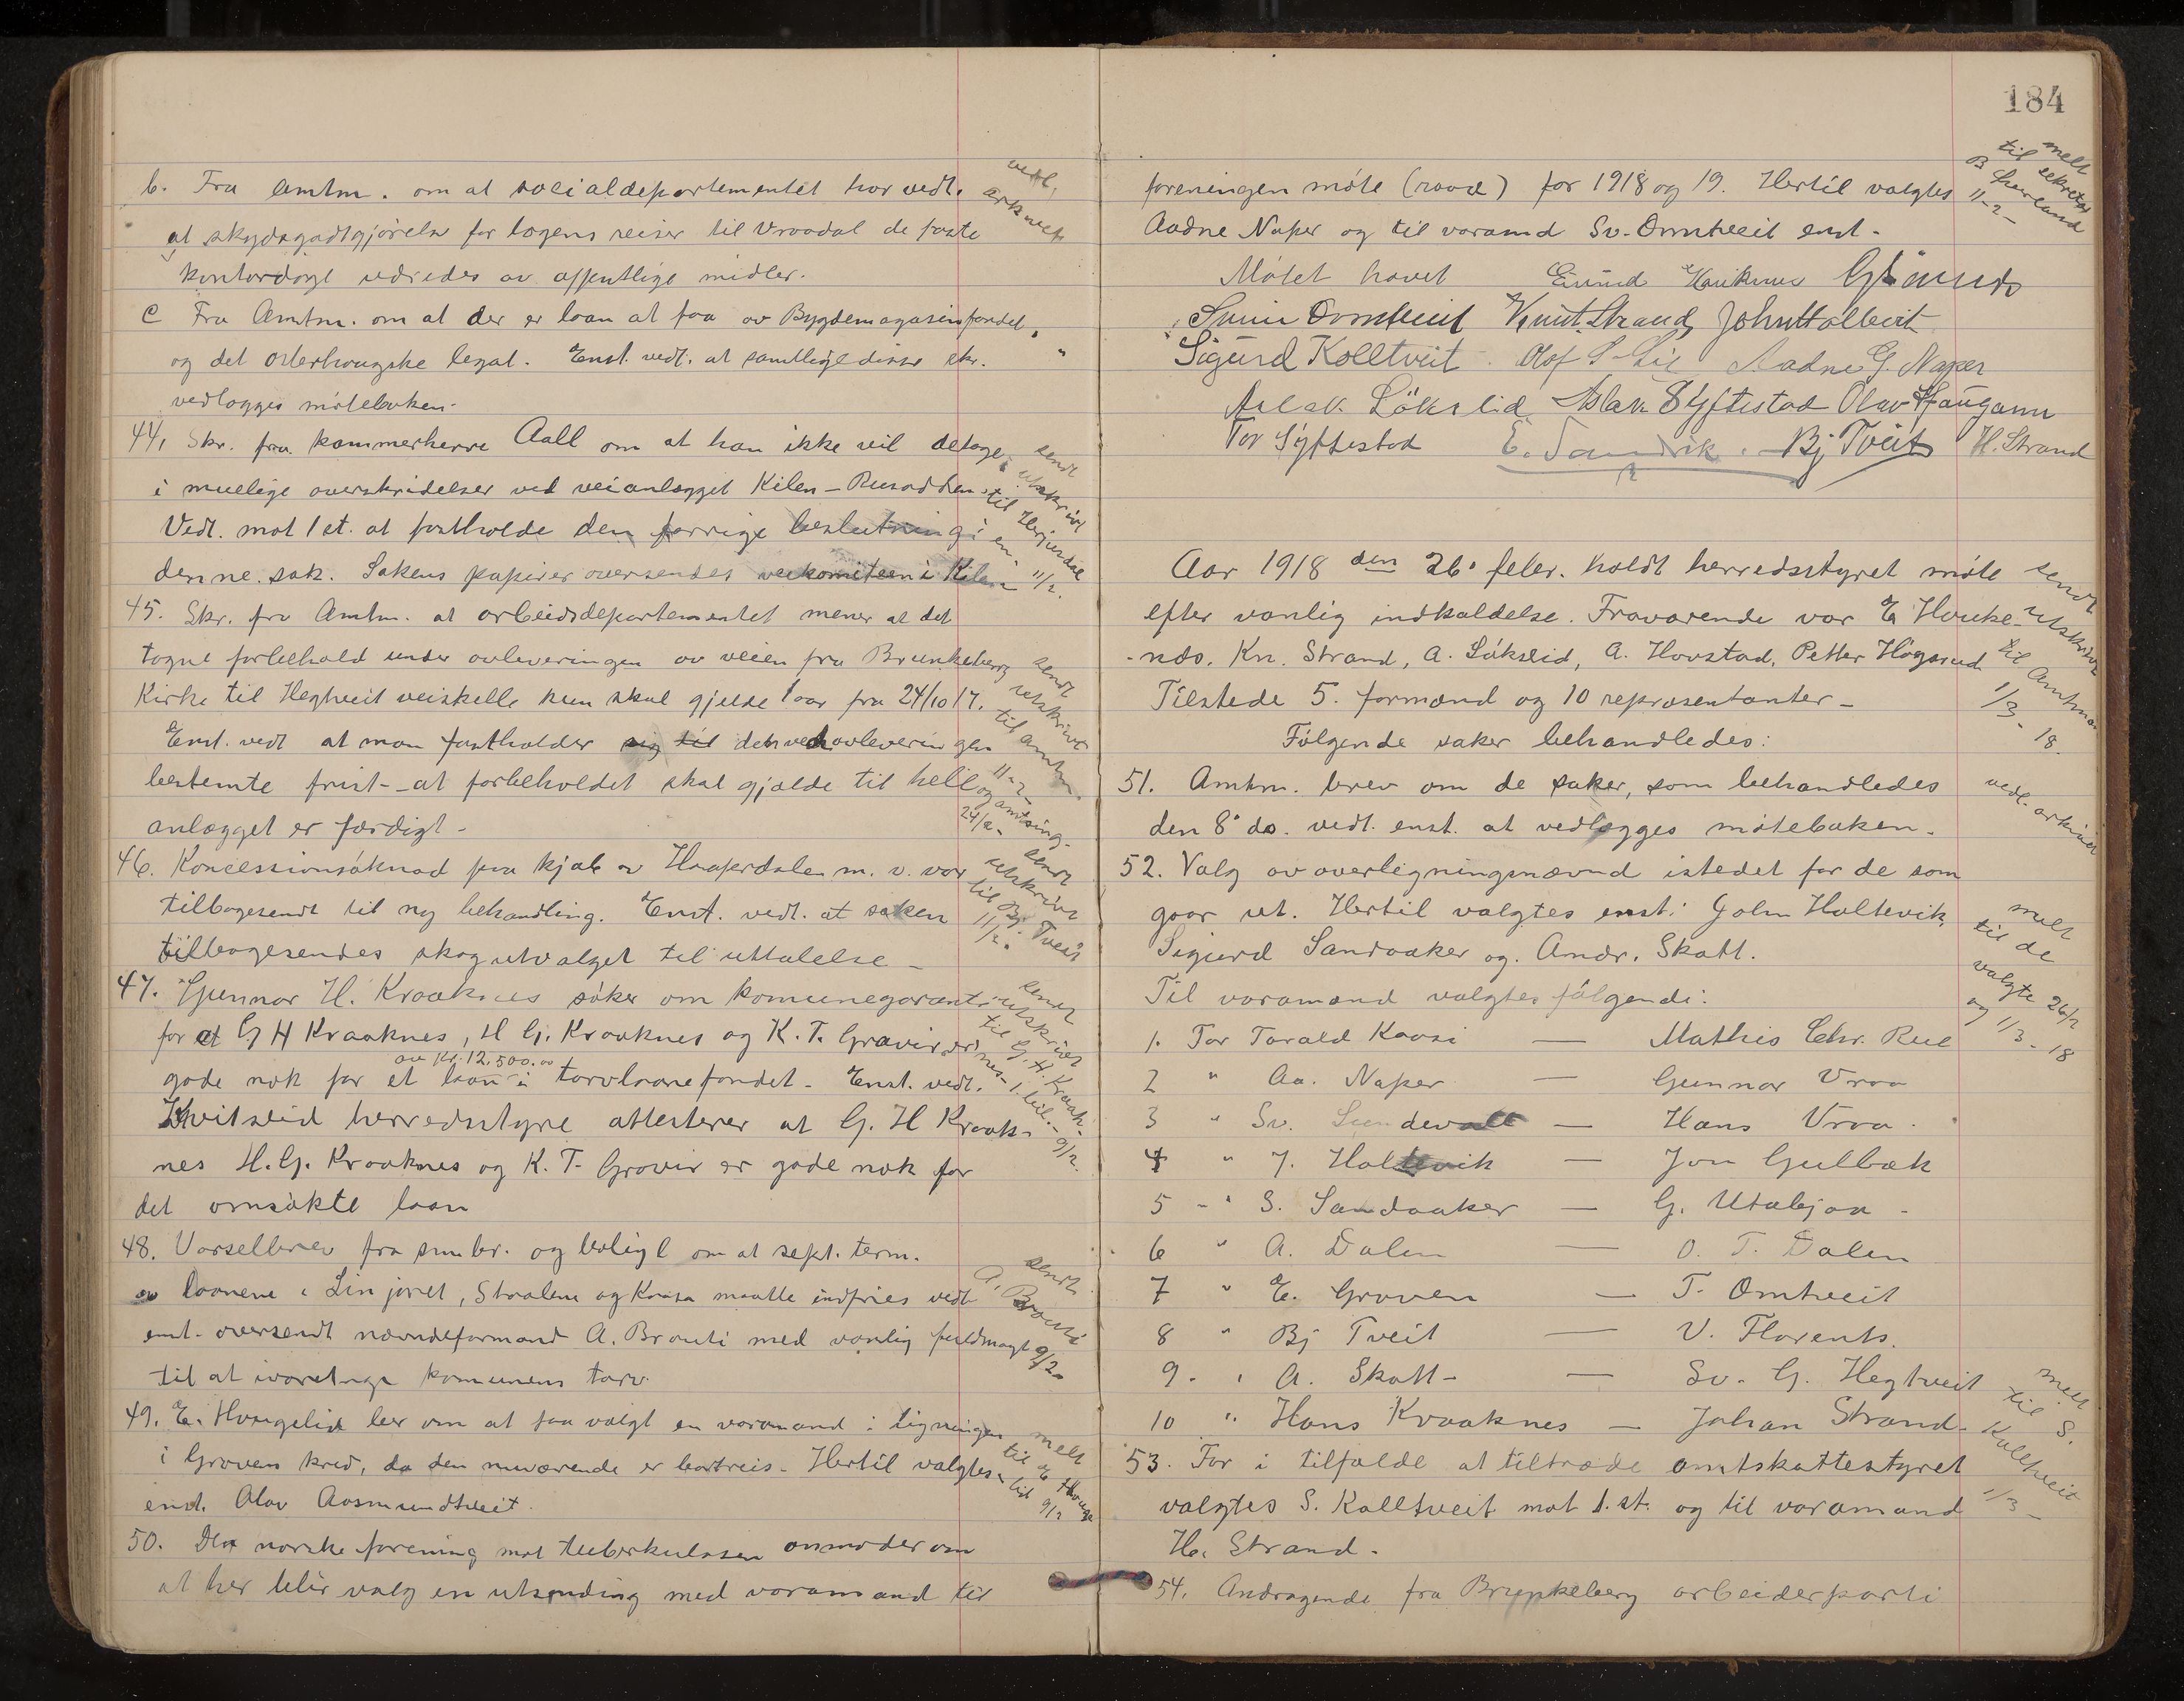 b. Fra Amtm. om at socialdepartementet har vedt.
at skydsgodtgjörelse for lægens reiser til Vraadal de faste
kontordage udredes av offentlige midler.
vedl. arkivet
c Fra Amtm. om at der er laan at faa av Bygdemagasinfondet
og det legat. Enst. vedt. at samtlige disse skr.
vedlægges möteboken.
44. Skr. fra kammerherre Aall om at han ikke vil deltage
i muelige overskridelser ved veianlægget Kilen –
Vedt. mot 1 st. at fastholde den forrige beslutning i
denne sak. Sakens papirer oversendes veikomiteen i Kilen
sendt utskrivt til 11/2.
45. Skr. fra Amtm. at arbeidsdepartementet mener at det
tagne forbehold under avleveringen av veien fra Brunkeberg
Kirke til Hegtveit veiskille kun skal gjelde 1 aar fra 24/10 17.
Enst. vedt at man fastholder sig til den ved avleveringen
bestemte frist - at forbeholdet skal gjælde til hele
anlægget er færdigt -
sendt utskrivt til amtm. 11-2- og amtsing. 24/2.
46. Koncessionsöknad paa kjöb av m. v. var
tilbagesendt til ny behandling. Enst. vedt. at saken
tilbagesendes skogutvalget til uttalelse -
sendt utskrivt til Bj. Tveit 11/2.
47. Gunnar H. Kraaknes söker om komunegaranti
for at G H Kraaknes, H G. Kraaknes og K. T. Gravir er
gode nok for et laan av Kr. 12,500.00 i torvlaanefondet - Enst. vedt.
Kvitseid herredsstyre attesterer at G. H Kraak-
nes H. G. Kraaknes og K. T. Gravir er gode nok for
det omsökte laan
sendt utskrivt til G. H. Kraak-nes - 1 bil. - 9/2.
48. Varselbrev fra smbr. og boligl om at sept. term.
av laanene i Linjoret, Straalene og Kaasa maatte indfries vedt
enst. oversendt nævndeformand A. Brauti med vanlig fuldmagt
til at ivaretage komunens tarv.
sendt A. Brauti 9/2.
49. E. Haugelid ber om at faa valgt en varamand i ligningen
i Groven kred, da den nuværende er bortreis - Hertil valgtes
enst. Olav Aasmundtveit.
melt til E Hauge-lid 9/2
50. Den norske forening mot tuberkulosen anmoder om
at her blir valg en utsending med varamand til
184
foreningen möte (raad) for 1918 og 19. Hertil valgtes
Aadne Naper og til varamd Sv. Omtveit enst -
melt til sekretær B 11-2-
Mötet hævet Eivind Haukenes
Svein Omtveit Knut Strand John Holtevik
Sigurd Kolltveit. Olof S Lie Aadne G. Naper
Aslak Lökslid Aslak Syftestad Olav Haugann
Tor Syftestad E. Sandvik. Bj Tveit H. Strand
Aar 1918 den 26' febr. holdt herredsstyret möte
efter vanlig indkaldelse. Fraværende var E Hauke-
nes. Kn. Strand, A. Lökslid, A. Hovstad, Petter Högsrud
Tilstede 5. formænd og 10 repræsentanter -
Fölgende saker behandledes:
sendt utskrivt til Amtman 1/3 - 18.
51. Amtm. brev om de saker, som behandledes
den 8' ds. vedt. enst. at vedlægges möteboken.
vedl. arkivet
52. Valg av overligningsnævnd istedet for de som
gaar ut. Hertil valgtes enst: John Holtevik
Sigurd Sandaaker og. Andr. Skatt.
Til varamænd valgtes fölgende:
melt til de valgte 26/2 og 1/3 - 18
1. For Torald Kaasi — Mathis Chr. Rue
2 " Aa. Naper — Gunnar Vraa
3 " Sv. Sundevall — Hans Vraa.
4 " J. Holtevik — Jon Gulbæk
5 - " S. Sandaaker — G. Utabjaa -
6 " A. Dalen — O. T. Dalen
7 " E. Groven — T. Omtveit
8 " Bj Tveit — V. Florents.
9 - " A. Skatt - — Sv. G. Hegtveit
10 " Hans Kraaknes — Johan Strand.
53. For i tilfælde at tiltræde amtskattestyret
valgtes S. Kolltveit mot 1. st. og til varamand
H. Strand -
melt til S. Kolltveit 1/3 -
54. Andragende fra Brunkeberg arbeiderparti